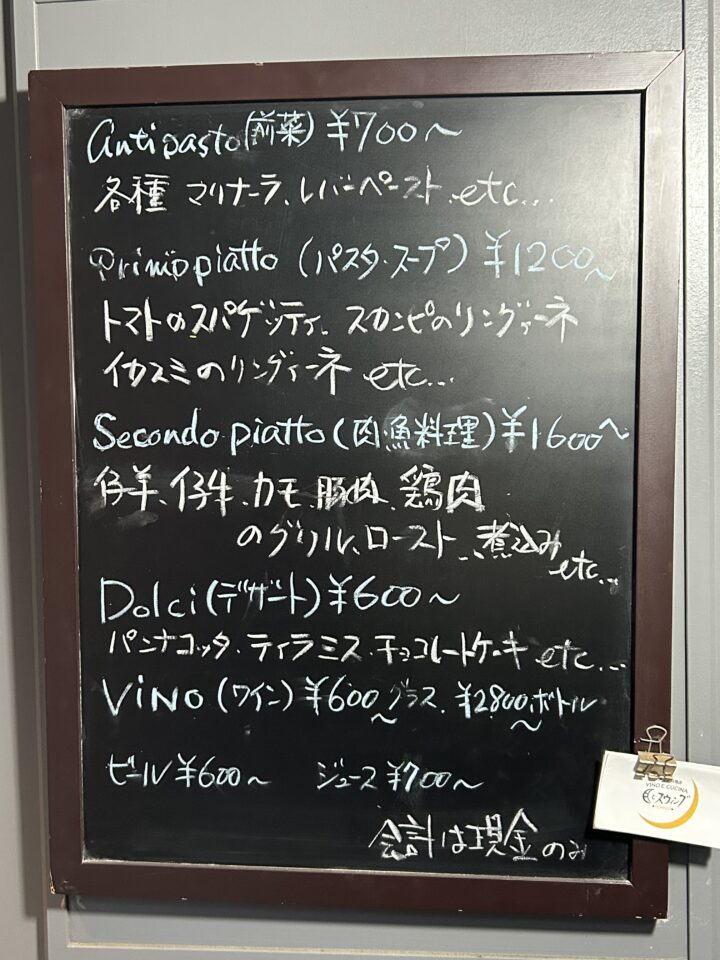 Antipasto(前菜) ¥700〜
各種 マリナーラ、レバーペースト etc...
Primopiatto (パスタ・スープ) ¥1200〜
トマトのスパゲッティ、スカンピのリングィーネ
イカスミのリングィーネ etc...
Secondo piatto (肉・魚料理) ¥1600〜
仔羊、仔牛、カモ、豚肉、鶏肉
のグリル、ロースト、煮込み
etc...
Dolci (デザート) ¥600〜
パンナコッタ・ティラミス・チョコレートケーキ etc...
ViNO (ワイン) ¥600〜グラス、¥2800〜ボトル
ビール ¥600〜 ジュース ¥700〜
会計は現金のみ
VINO E CUCINA
スウィング